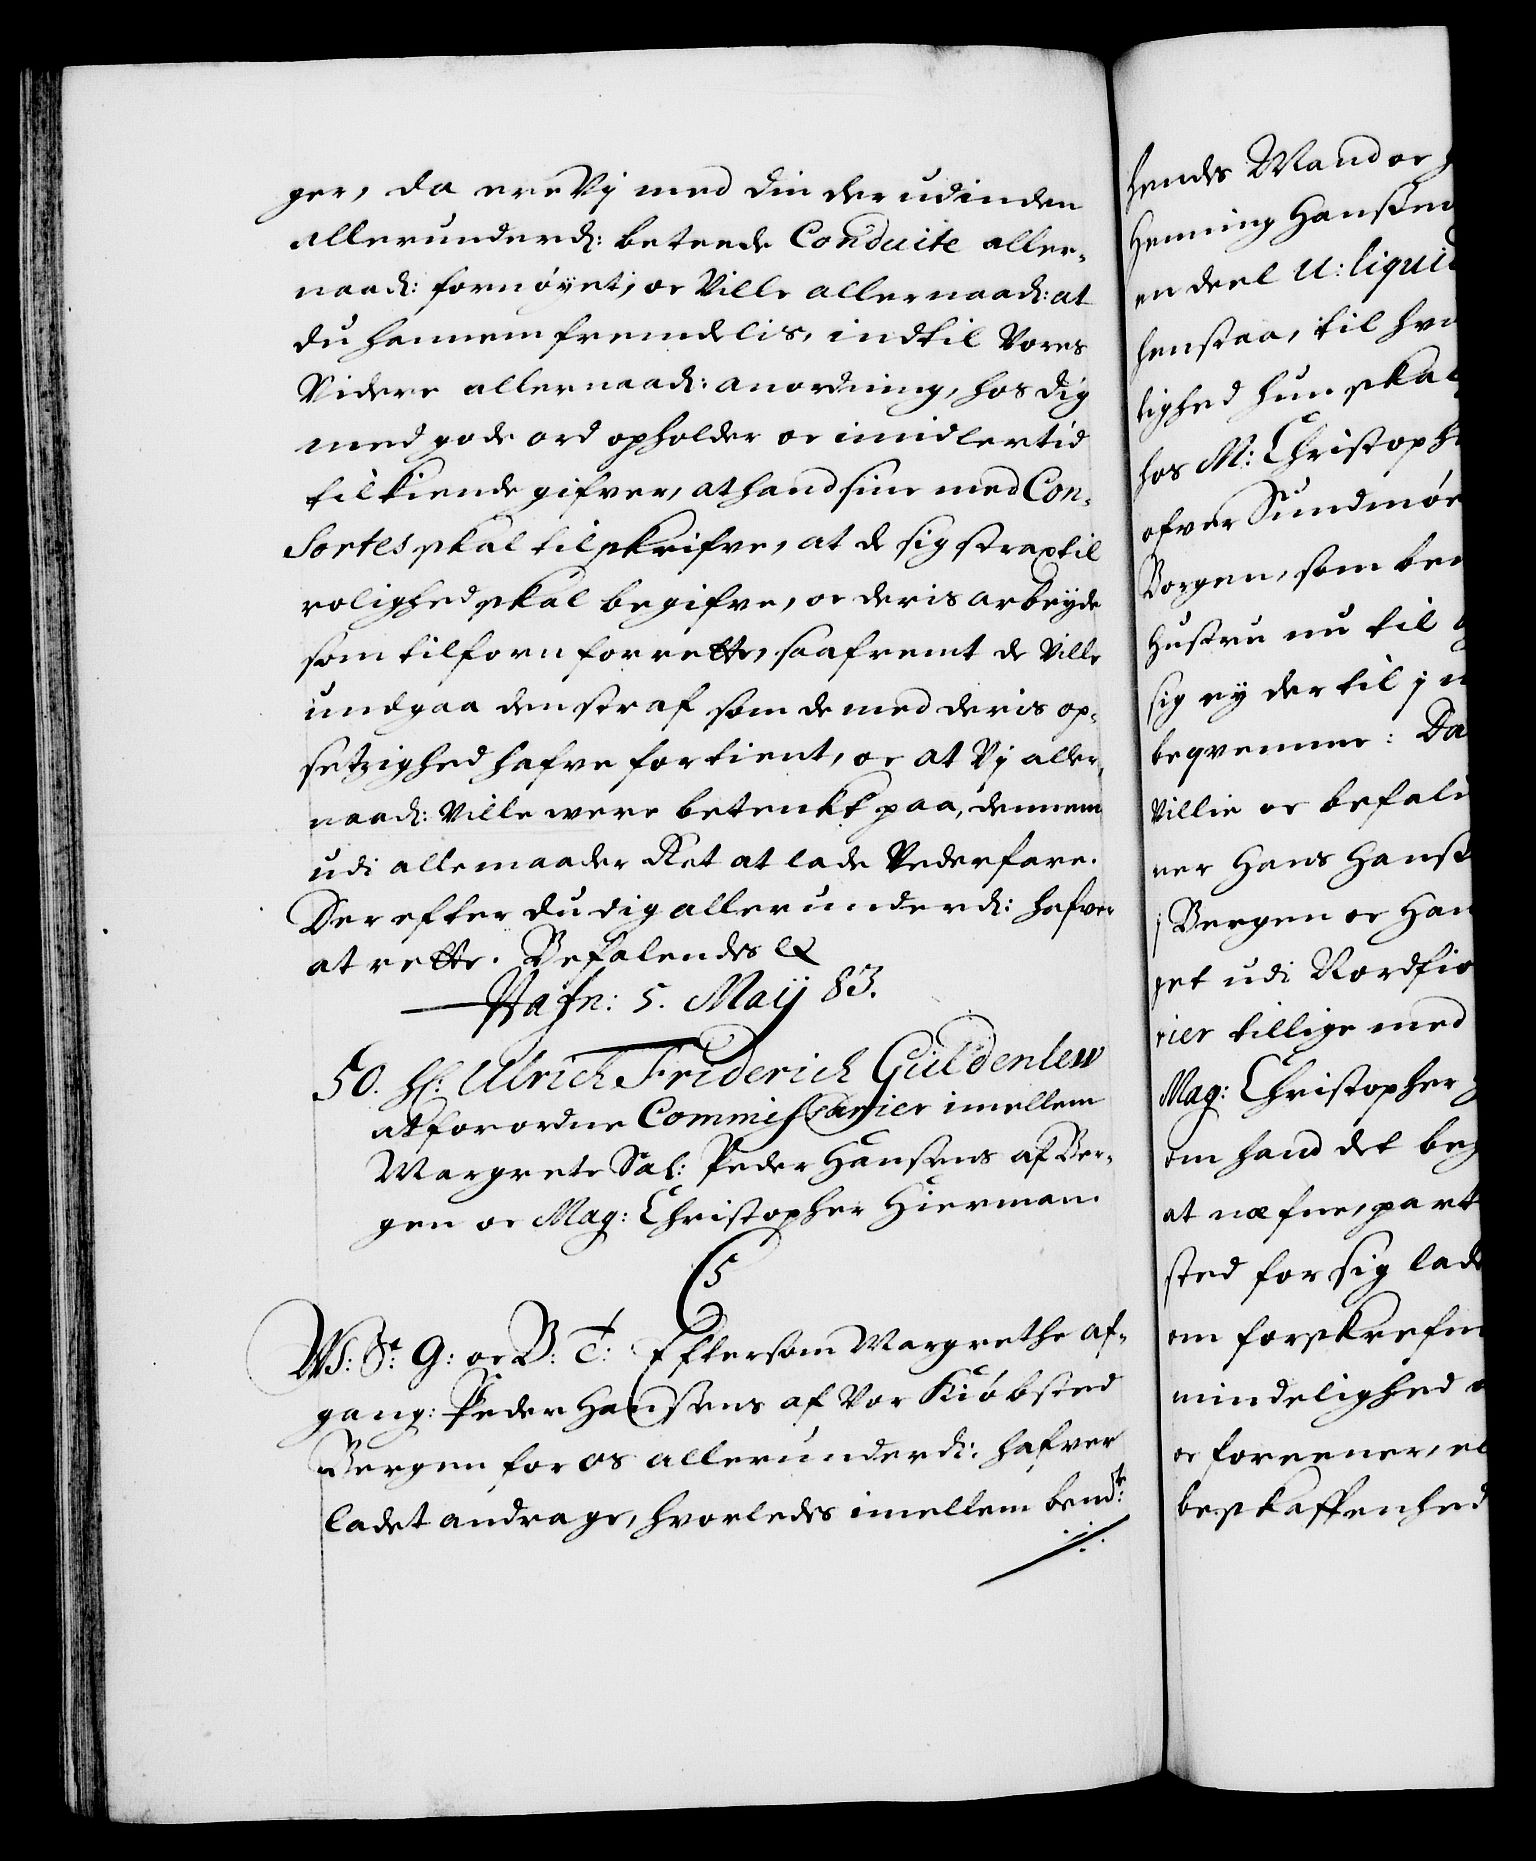 ger, da ere Vj med din der udinden
allerunderd: beteede Conduite aller-
naad: fornøyet, oc Ville allernaad: at
du hannem fremdelis, indtil Vores
Videre allernaad: anordning, hos dig
med gode ord opholder oc imidlertid
tilkiende gifver, at hand sine med Con-
Sortes skal tilskrifve, at de sig strax til
rolighed skal begifve, oc deris arbeyde
som tilforn forrette, saafremt de Ville
undgaa den straf som de med deris op-
setzighed hafve fortient, oc at Vj aller-
naad: Ville were betenkt paa, dennem
udi alle maader Ret at lade Vederfare.
Der efter du dig allerunderd: hafver
at rette. Befalendes &
Hafn: 5. Maij 83.
50. H: Ulrich Friderich Güldenlew
at forordne Commissarier imellem
Margrete Sal: Peder Hansens af Ber-
gen oc Mag: Christopher Hierman.
C5
W: St: G: oc B: T: Eftersom Margrethe af-
gang: Peder Hansens af Vor Kiøbsted
Bergen for os allerunderd: hafver
ladet andrage, hvorledes imellem bemd:te
hendes Mand oc
Henning Hansen
en deel U: liqui
henstaa, til hv
lighed hun skal
hos M: Christoph
ofver Sundmør
Borgen, som be
Hustru nu til
sig ey der til j
beqvemme: Da
Villie oc befal
ner Hans Hans
j Bergen oc Han
get udi Nordfio
rier tillige med
Mag: Christopher
om hand det beg
at næfne, part
sted for sig lad
om forskrefn
mindelighed
oc foreener, el
beskaffenhed